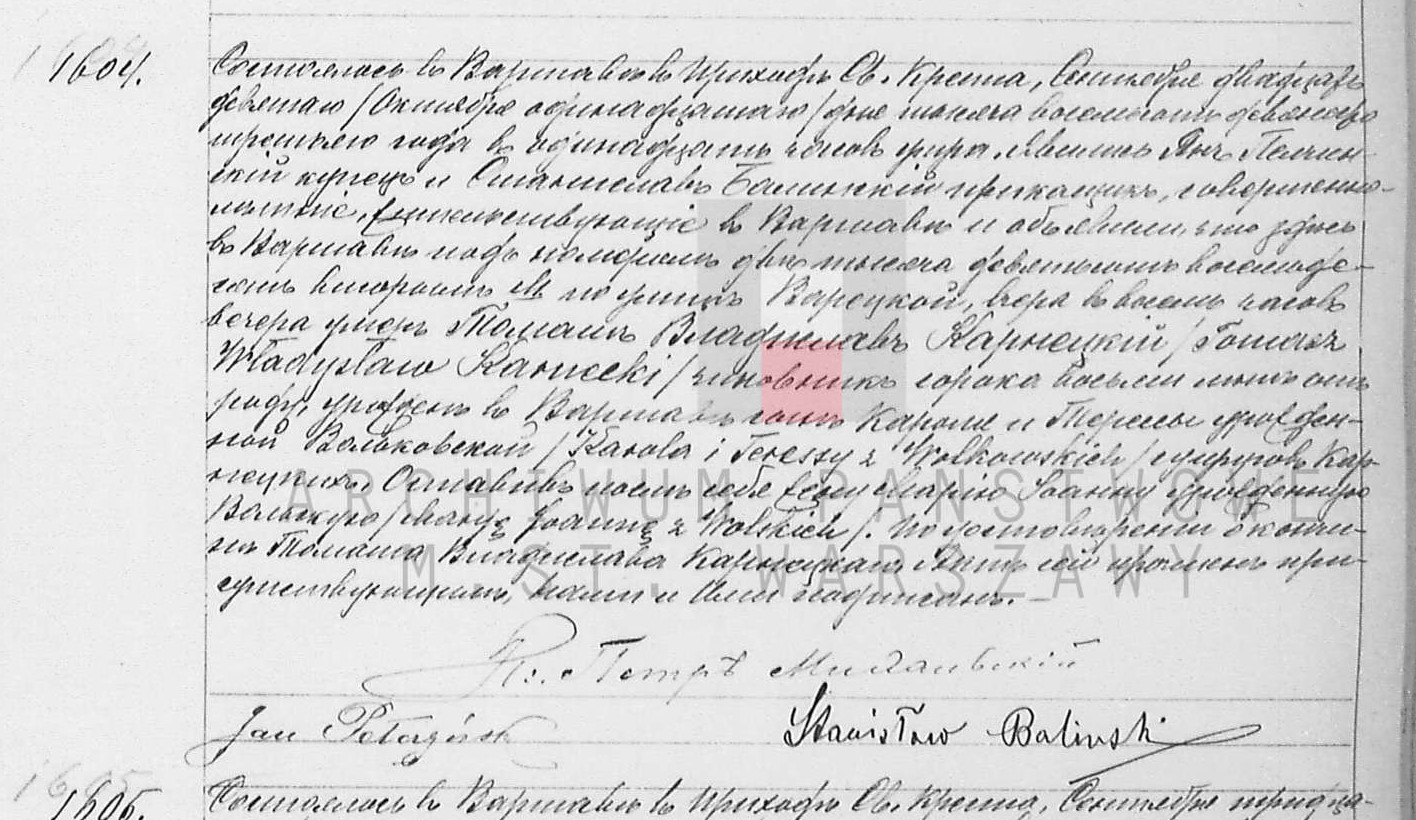 1604.
Состоялось въ Варшавѣ въ приходѣ Св. Креста, Сентября двадцать
девятаго /Октября одинадцатаго/ дня тысяча восемьсотъ девяносто
третьяго года въ одинадцать часовъ утра. Явились Янъ
скій купецъ и Станиславъ Балинскій прикащикъ, совершенно-
лѣтніе, жительствующіе въ Варшавѣ и объявили, что здѣсь
въ Варшавѣ подъ номеромъ двѣ тысяча девятьсотъ восемьде-
сятъ вторымъ М по улицѣ Варецкой, вчера въ восемь часовъ
вечера умеръ Томашъ Владиславъ Карнецкій /Tomasz
Władysław Karnecki/ чиновникъ сорока восьми лѣтъ отъ
роду, урожденъ въ Варшавѣ сынъ Кароля и Тересы урожден-
ной Вольковской /Karola i Teressy z Wolkowskich/ супруговъ Кар-
нецкихъ. Оставивъ послѣ себя жену Марію Іоанну урожденную
Вольскую /Maryę Joannę z Wolskich/. По удостовѣреніи о кончи-
нѣ Томаша Владислава Карнецкаго, Актъ сей прочтенъ при-
сутствующимъ, Нами и Ими подписанъ. —
Кс. Петръ
Jan
Stanisław Balinski
1605.
Состоялось въ Варшавѣ въ приходѣ Св. Креста, Сентября тридца-
ARCHIWUM PAŃSTWOWE
M.ST. WARSZAWY